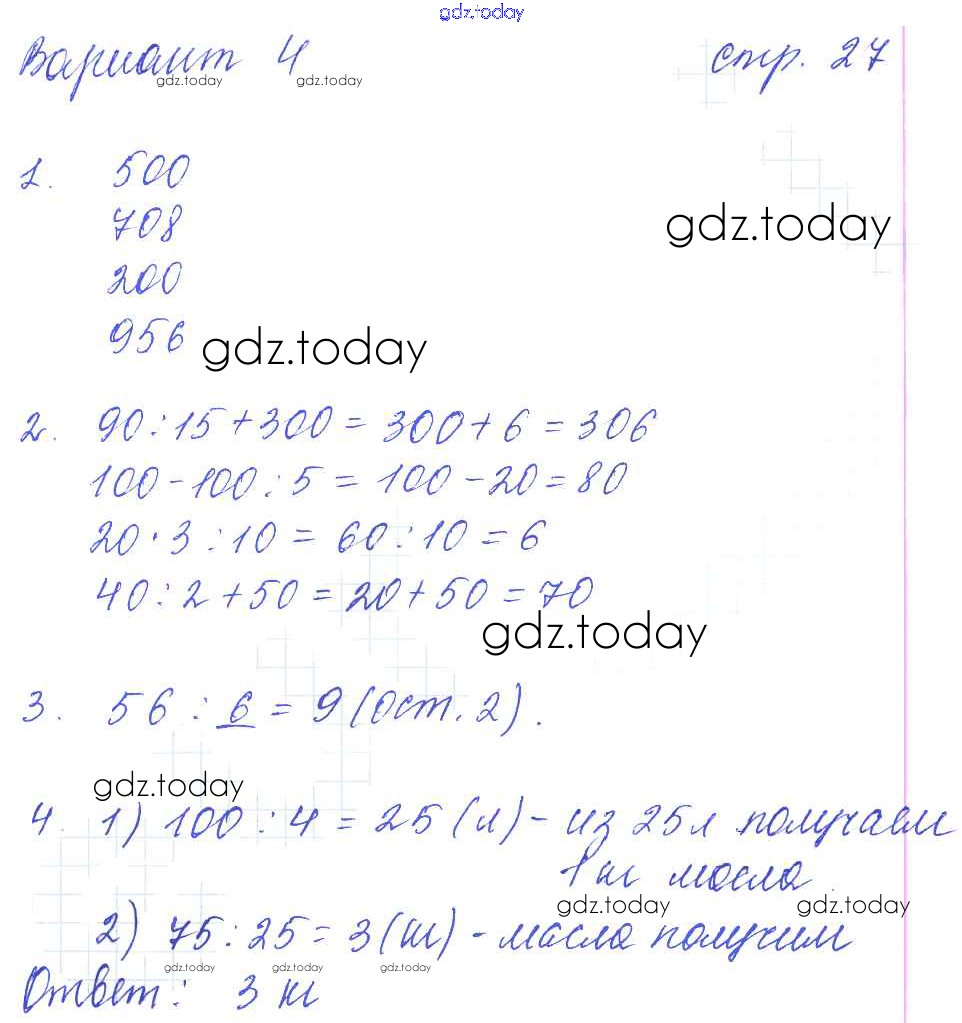 gdz.today
Вариант 4 стр. 27
gdz.today gdz.today
1. 500
708
gdz.today
200
956
gdz.today
2. 90:15+300=300+6=306
100-100:5=100-20=80
20·3:10=60:10=6
40:2+50=20+50=70
gdz.today
3. 56:6=9(ост.2).
gdz.today
4. 1) 100:4=25(л)- из 25л получаем
1 кг масла
gdz.today gdz.today
2) 75:25=3(кг)-масла получим
gdz.today gdz.today gdz.today
Ответ: 3 кг